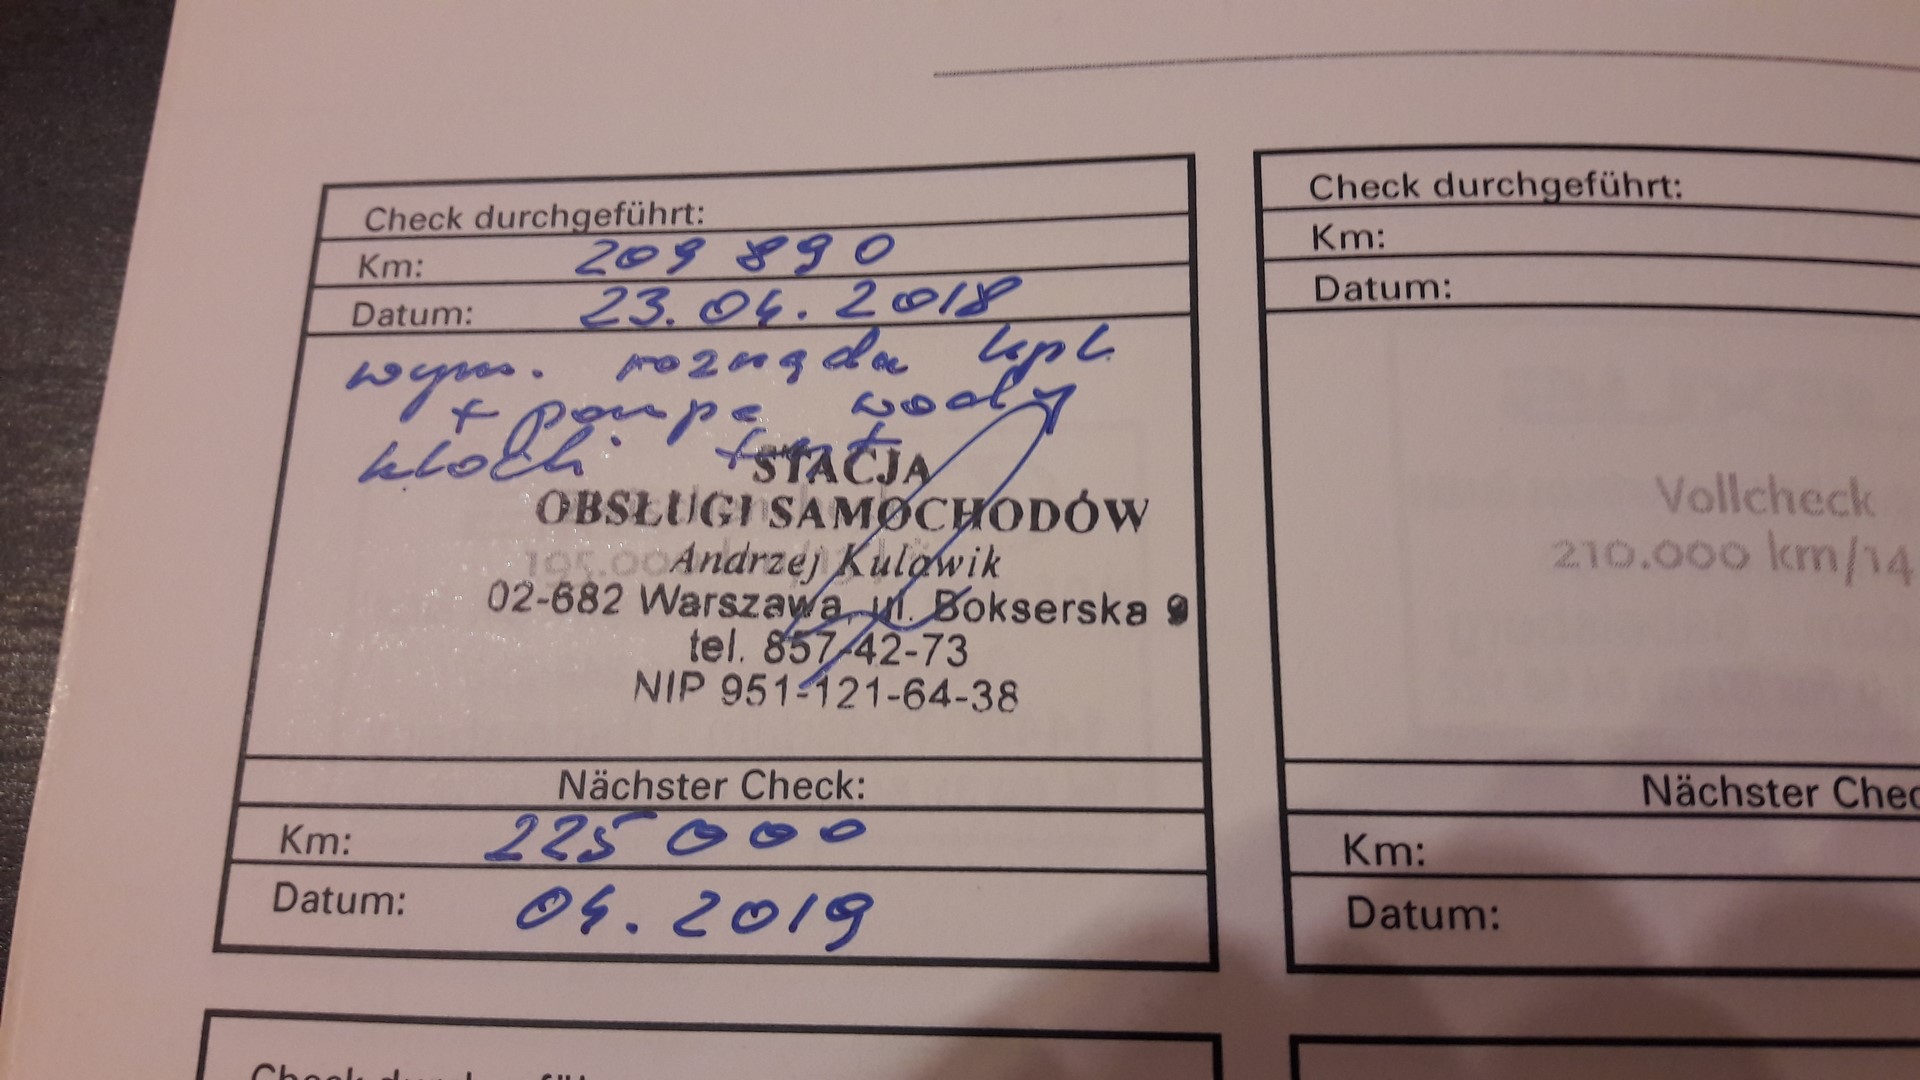 Check durchgeführt:
Km: 209 890
Datum: 23.04.2018
wym. rozrządu kpl.
+ pompa wody
klocki
STACJA
OBSŁUGI SAMOCHODÓW
Andrzej Kulawik
02-682 Warszawa, ul. Bokserska 9
tel. 857-42-73
NIP 951-121-64-38
Nächster Check:
Km: 225 000
Datum: 04.2019
Check durchgeführt:
Km:
Datum:
Vollcheck
210.000 km/14
Nächster Chec
Km:
Datum: